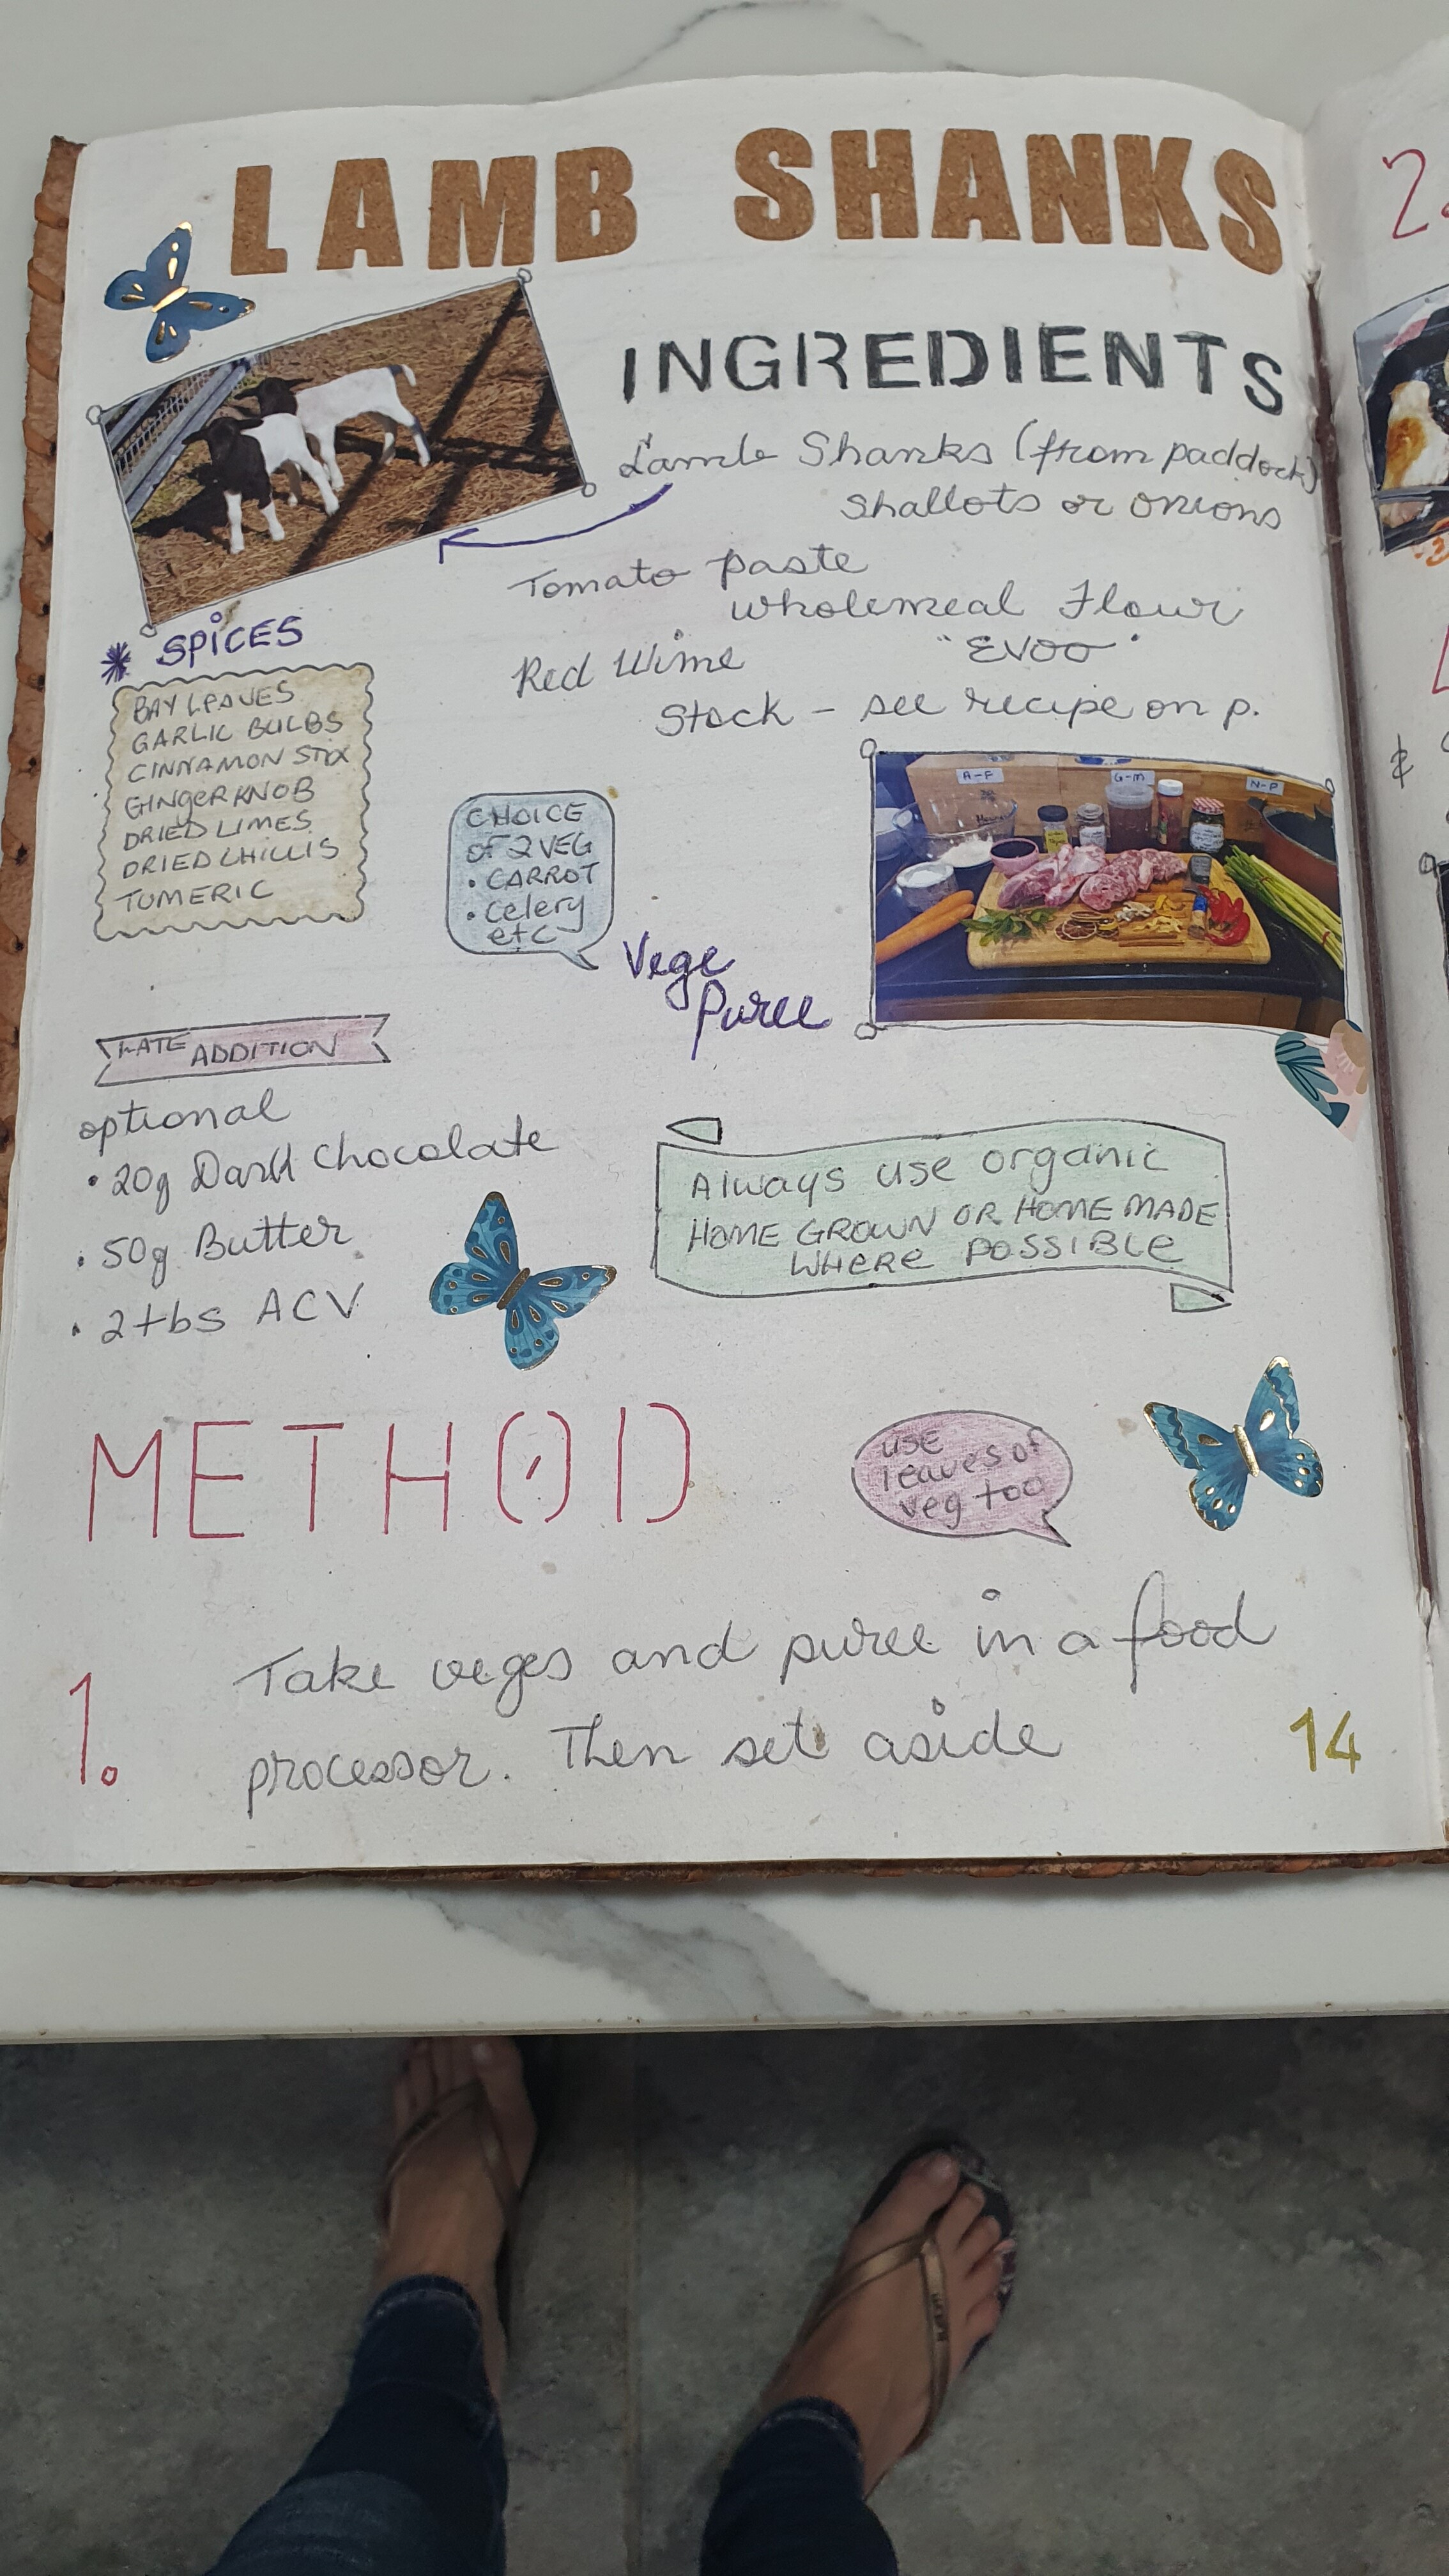 LAMB SHANKS
INGREDIENTS
Lamb Shanks (from paddock)
Shallots or onions
Tomato paste
wholemeal Flour
Red Wine
"EVOO"
Stock - see recipe on p.
* SPICES
BAY LEAVES
GARLIC BULBS
CINNAMON STIX
GINGER KNOB
DRIED LIMES
DRIED CHILLIS
TUMERIC
CHOICE
OF 2 VEG
• CARROT
• celery
etc
Vege
Puree
A-F
G-M
N-P
LATE ADDITION
optional
• 20g Dark Chocolate
• 50g Butter
• 2tbs ACV
Always use organic
HOME GROWN OR HOME MADE
WHERE POSSIBLE
METHOD
use
leaves of
veg too
1. Take veges and puree in a food
processor. Then set aside
14
2
&